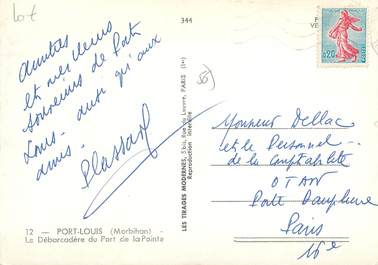 Lot
344
55
0,20
Amitiés
et meilleurs
souvenirs de Port
Louis - ainsi qu'aux
amis -
Plassart
LES TIRAGES MODERNES, 5 bis, Rue du Louvre, PARIS (1er)
Reproduction interdite
Monsieur Dellac
et le Personnel
de la Comptabilité
OTAN
Porte Dauphine
Paris
16e
12 - PORT-LOUIS (Morbihan) -
Le Débarcadère du Port de la Pointe